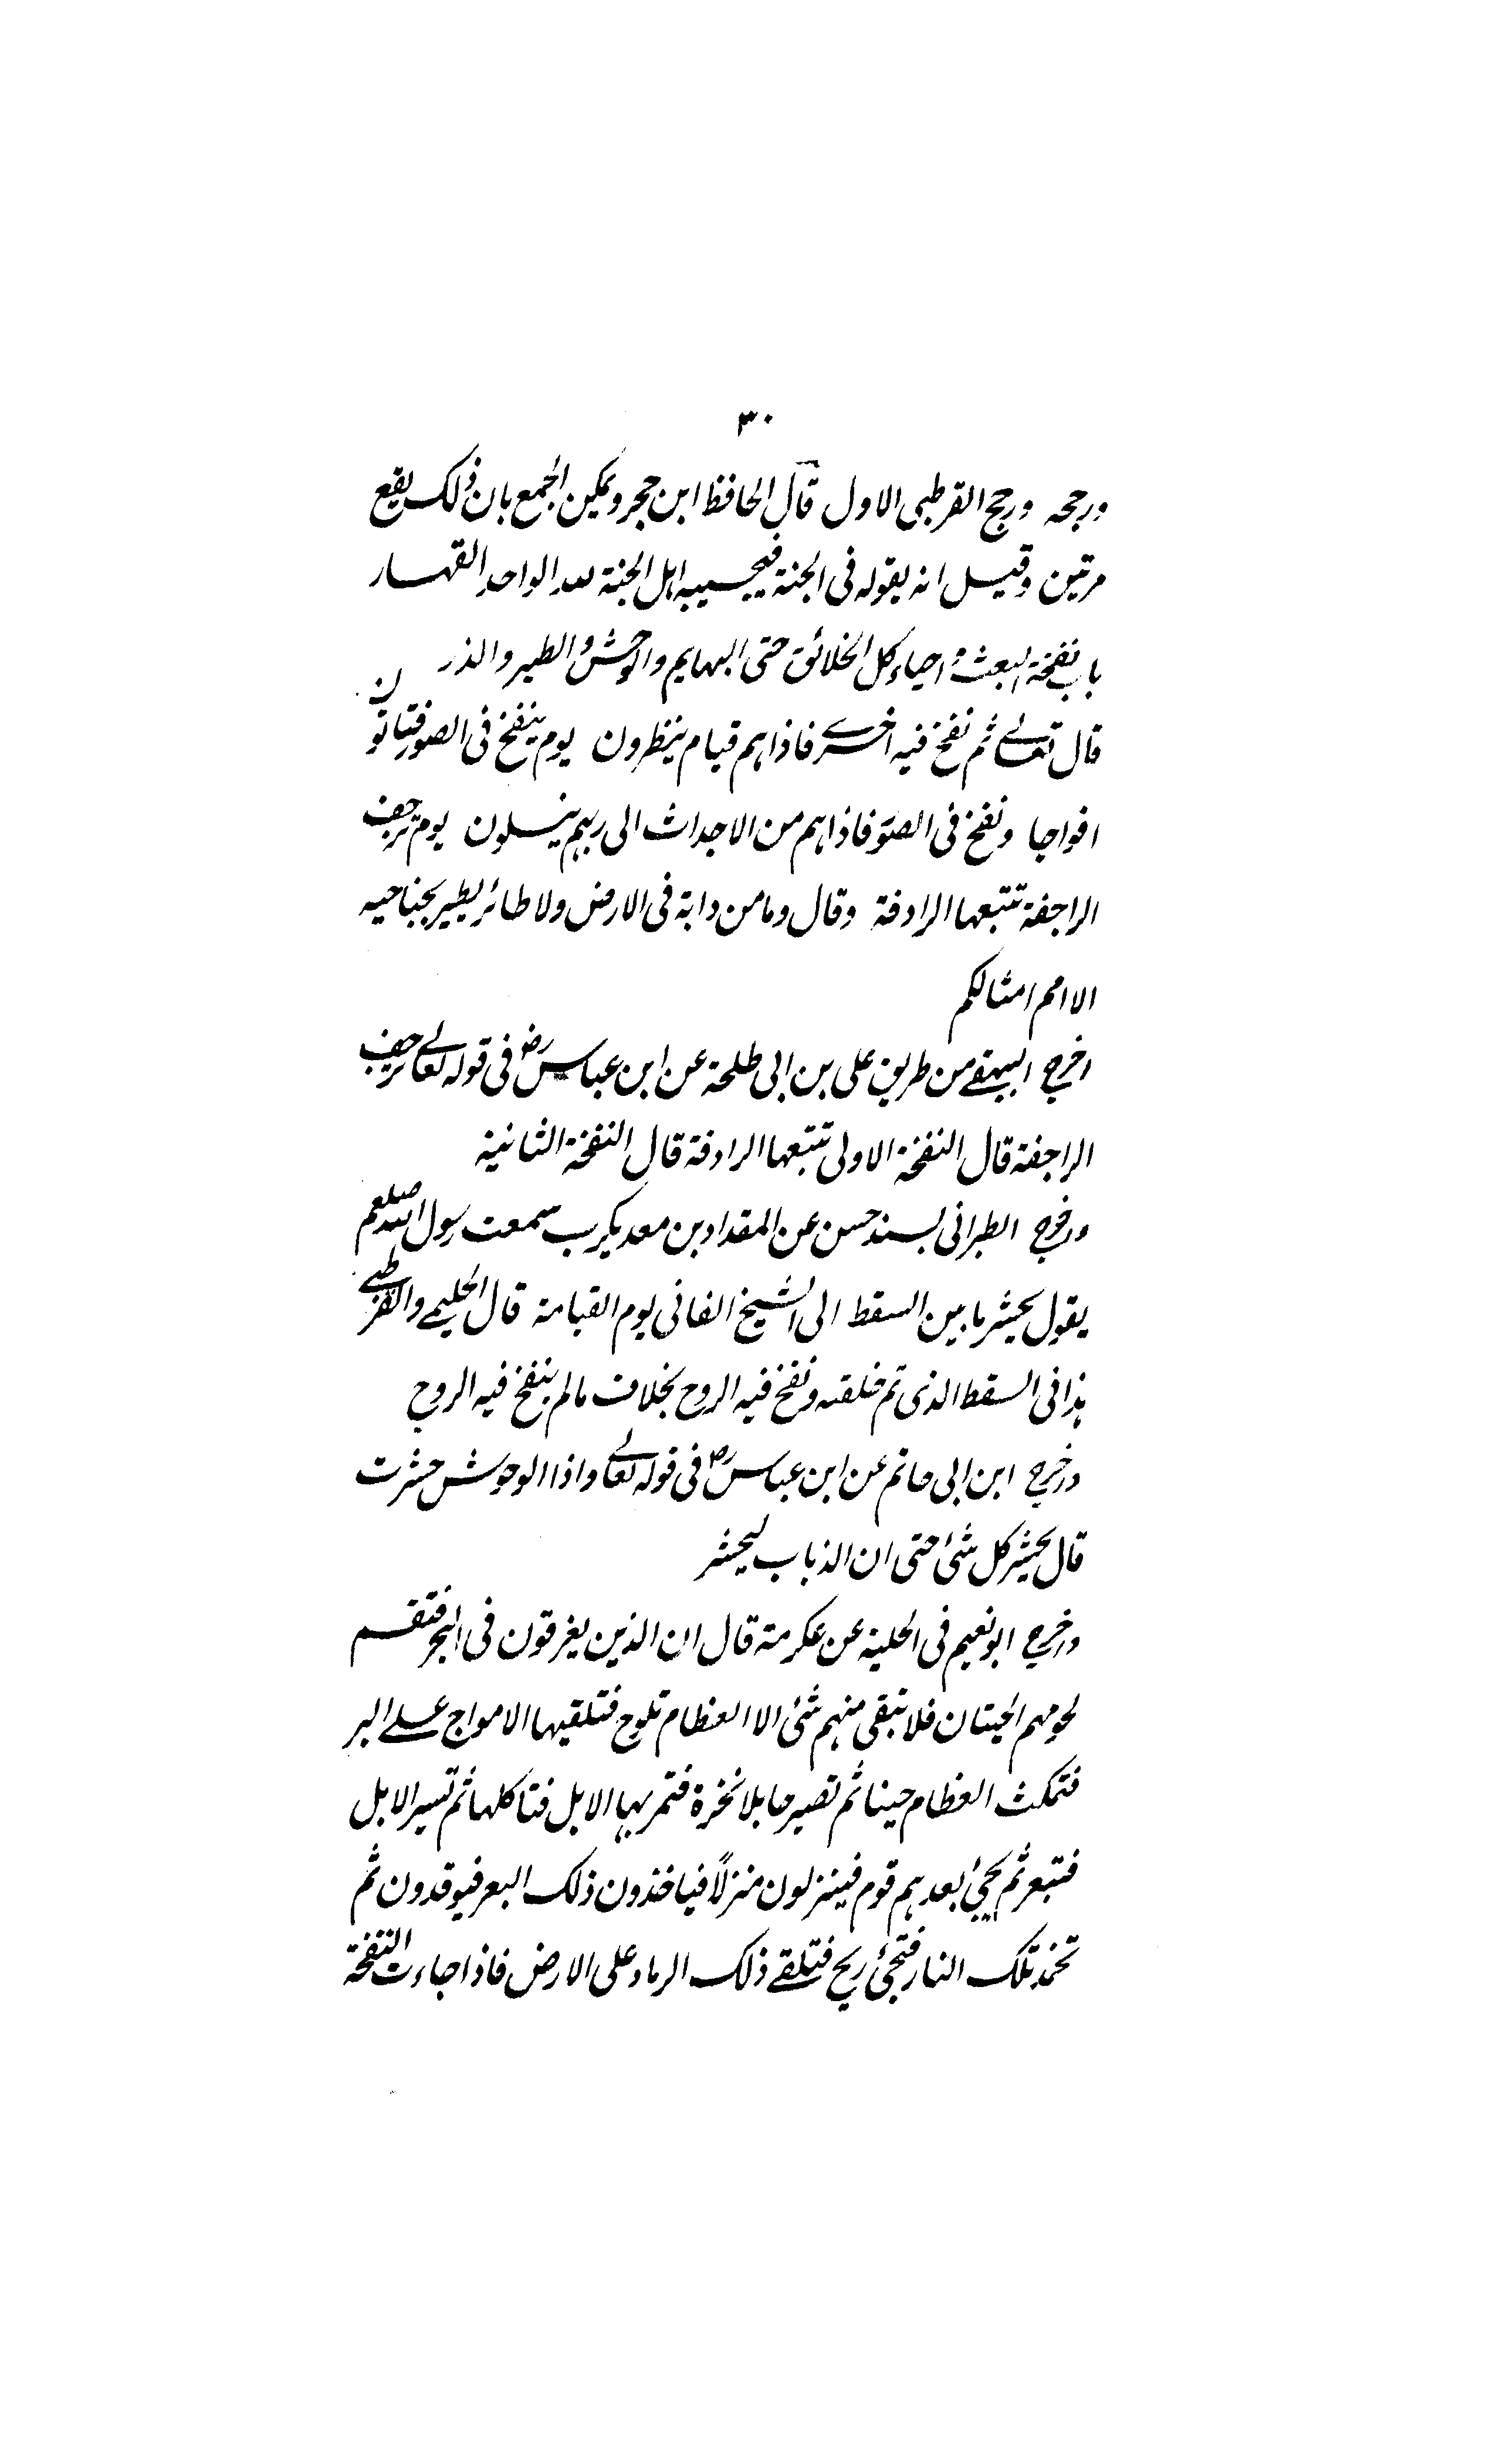 ۳۰
ورجحه ورجح القرطبی الاول قال الحافظ ابن حجر ویمکن الجمع بان ذلک یقع
مرتین وقیل انه یقوله فی الجنة فیجیبه اهل الجنة لله الواحد القهار
باب نفخة البعث واحیاء کل الخلائق حتی البهایم والوحش والطیر والذر
قال تعالے ثم نفخ فیه اخرے فاذا هم قیام ینظرون یوم ینفخ فی الصور فتاتون
افواجا ونفخ فی الصور فاذا هم من الاجداث الی ربهم ینسلون یوم ترجف
الراجفة تتبعها الرادفة وقال وما من دابة فی الارض ولا طائر یطیر بجناحیه
الا امم امثالکم
اخرج البیهقے من طریق علی بن ابی طلحة عن ابن عباس رض فی قوله تعالے ترجف
الراجفة قال النفخة الاولی تتبعها الرادفة قال النفخة الثانیة
واخرج الطبرانی بسند حسن عن المقداد بن معدیکرب سمعت رسول الله صلعم
یقول یحشر ما بین السقط الی الشیخ الفانی یوم القیامة قال الحلیمے والقرطبے
هذا فی السقط الذی تم خلقته ونفخ فیه الروح بخلاف ما لم ینفخ فیه الروح
واخرج ابن ابی حاتم عن ابن عباس رض فی قوله تعالے واذا الوحوش حشرت
قال یحشر کل شئ حتی ان الذباب لیحشر
واخرج ابو نعیم فی الحلیة عن عکرمة قال ان الذین یغرقون فی البحر فتقسم
لحومهم الحیتان فلا تبقی منهم شئ الا العظام تلوح فتلقیها الامواج علے البر
فتمکث العظام حینا ثم تصیر حابلا نخرة فتمر بها الابل فتاکلها ثم تسیر الابل
فتبعر ثم یجئ بعدهم قوم فینزلون منزلاً فیاخذون ذلک البعر فیوقدون ثم
تخمد تلک النار فتجئ ریح فتلقے ذلک الرماد علی الارض فاذا جاءت النفخة